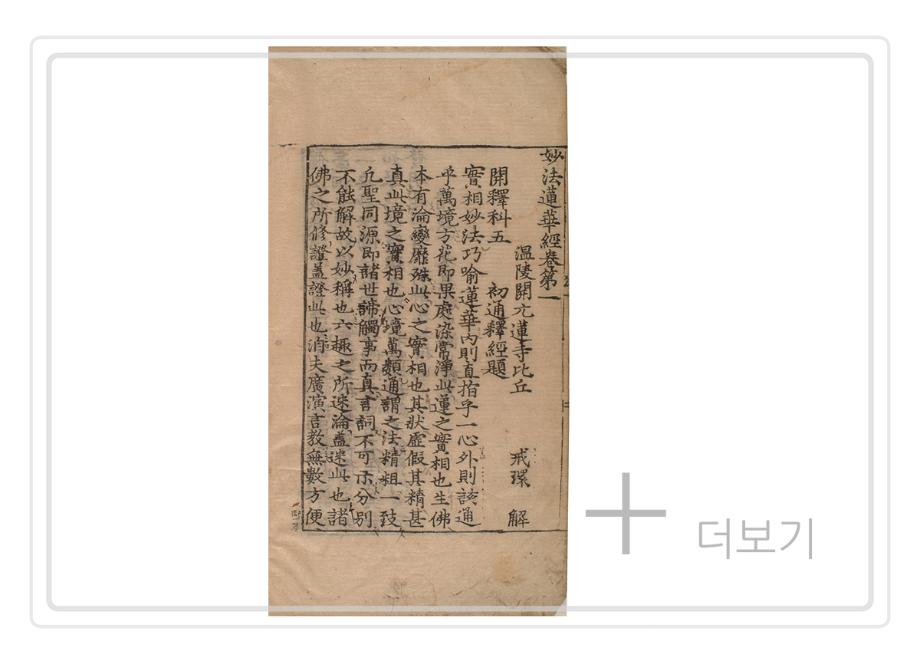 妙法蓮華經卷第一
温陵開元蓮寺比丘 戒環 解
開釋科五 初通釋經題
實相妙法巧喻蓮華内則直指乎一心外則該通
乎萬境方花即果處染常淨此蓮之實相也生佛
本有淪變靡殊此心之實相也其狀虛假其精甚
真此境之實相也心境萬類通謂之法精粗一致
凡聖同源即諸世諦觸事而真言詞不可示分別
不能解故以妙稱也六趣之所迷淪盖迷此也諸
佛之所修證盖證此也消夫廣演言教無數方便
더보기